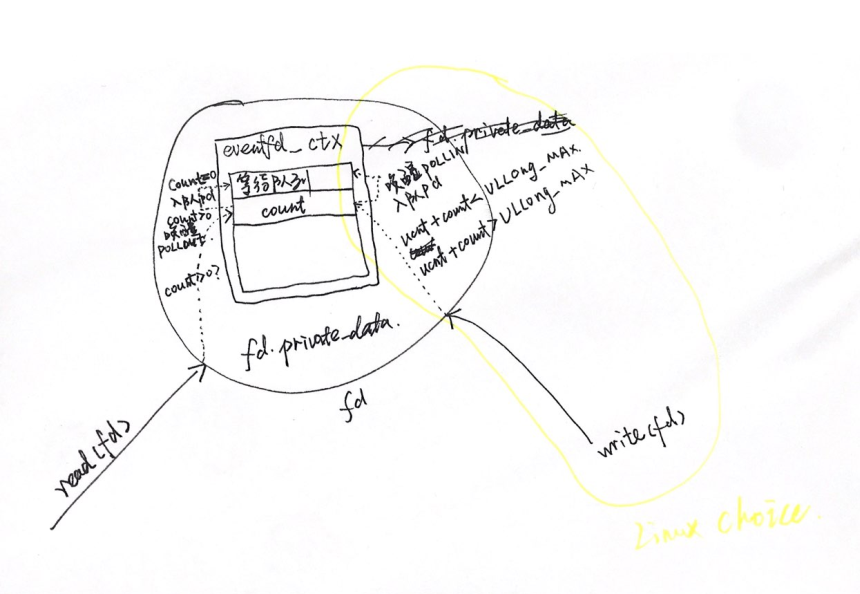 eventfd_ctx
fd.private_data
等待队列
count
count=0
入队pd
count>0
唤醒
POLLOUT
count>0?
唤醒POLLIN
入队pd
ucnt+count<ULLong_MAX.
ucnt+count>ULLong_MAX
fd.private_data.
fd
read(fd)
write(fd)
Linux choice.